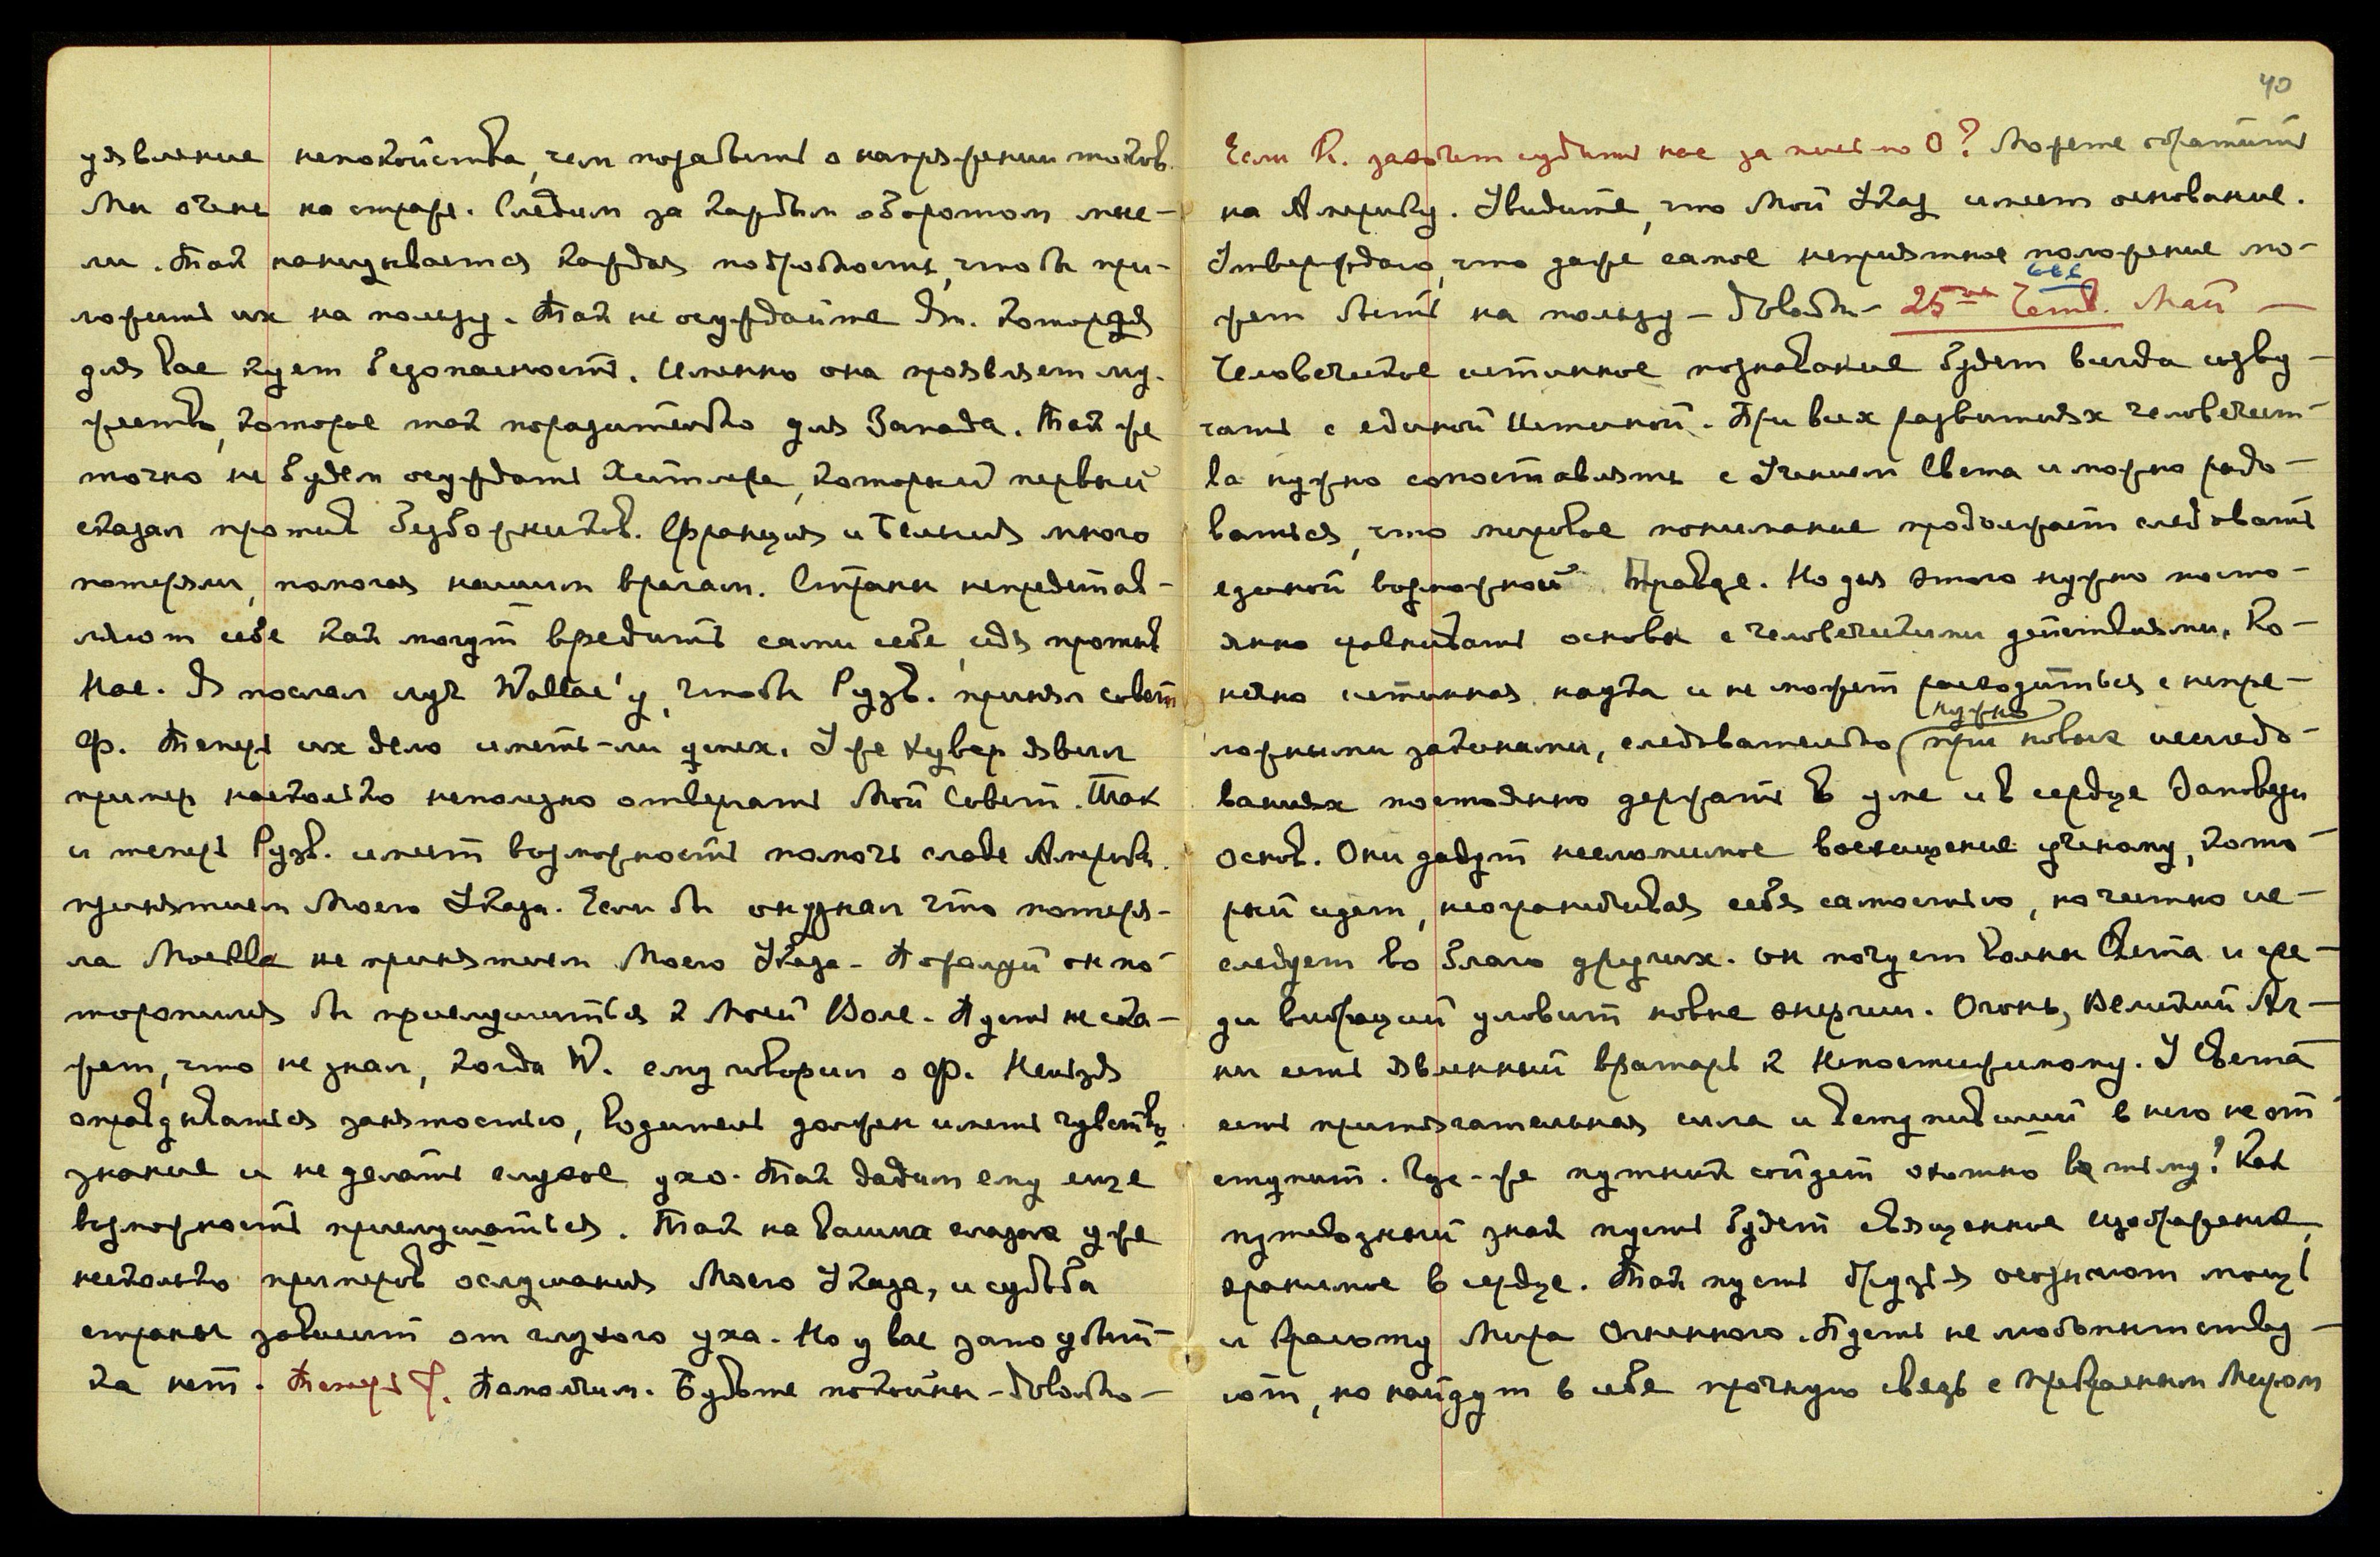 уявление непокойства, чем позабыть о напряжении токов.
Мы очень на страже. Следим за каждым оборотом мыс-
ли. Так нанизывается каждая подробность, чтобы при-
ложить их на пользу. Так не осуждайте Яп. которая
для вас кует безопасность. Именно она проявляет му-
жество, которое так поразительно для Запада. Так же
точно не будем осуждать Хитлера, который первый
сказал против безбожников. Франция и Бельгия много
потеряли, помогая нашим врагам. Страны непредстав-
ляют себе как могут вредить сами себе, идя против
Нас. Я послал луч Wallac'у, чтобы Рузв. принял совет
Ф. Теперь их дело иметь-ли успех. Уже Хувер явил
пример насколько неполезно отвергать Мой Совет. Так
и теперь Рузв. имеет возможность помочь славе Америки
принятием Моего Указа. Если бы он узнал что потеря-
ла Москва не принятием Моего Указа - Пожалуй он по-
торопился бы прислушиться к Моей Воле. Пусть не ска-
жет, что не знал, когда W. ему говорил о Ф. Нельзя
оправдываться занятостью, водитель должен иметь чувство
знание и не делать глухое ухо. Так дадим ему еще
возможность прислушаться. Так на ваших глазах уже
несколько примеров ослушания Моего Указа, и судьба
страны зависит от глухого уха. Но у вас зато убыт-
ка нет. Теперь Ф. Помолчим. Будьте покойны - Довольно -
40
Если К. захочет судить нас за письмо О? Можете обратить
на Америку. Увидите, что Мой Указ имеет основание.
Утверждаю, что даже самое неприятное положение мо-
жет быть на пользу - Довольно - 25ое Четв. Май —
Человеческое истинное познавание будет всегда созву-
чать с единой Истиной. При всех развитиях человечест-
ва нужно сопоставлять с Учением Света и можно радо-
ваться, что мировое понимание продолжает следовать
единой возможной Правде. Но для этого нужно посто-
янно сравнивать основы с человеческими действиями. Ко-
нечно истинная наука и не может расходиться с непре-
ложными законами, следовательно при новых исследо-
нужно
ваниях постоянно держать в уме и в сердце Заповеди
основ. Они дадут несломимое восхищение ученому, кото-
рый идет, неограничивая себя самостью, но честно ис-
следует во благо других. Он почует волны Света и сре-
ди вибраций уловит новые энергии. Огонь, Великий Аг-
ни есть явленный вратарь к Непостижимому. У Света
есть притягательная сила и вступивший в него не от-
ступит. Где-же путник сойдет охотно во тьму? Как
путевозный знак пусть будет священное изображение,
хранимое в сердце. Так пусть друзья осознают мощь
и красоту Мира Огненного. Пусть не любопытству-
ют, но найдут в себе прочную связь с Прекрасным Миром